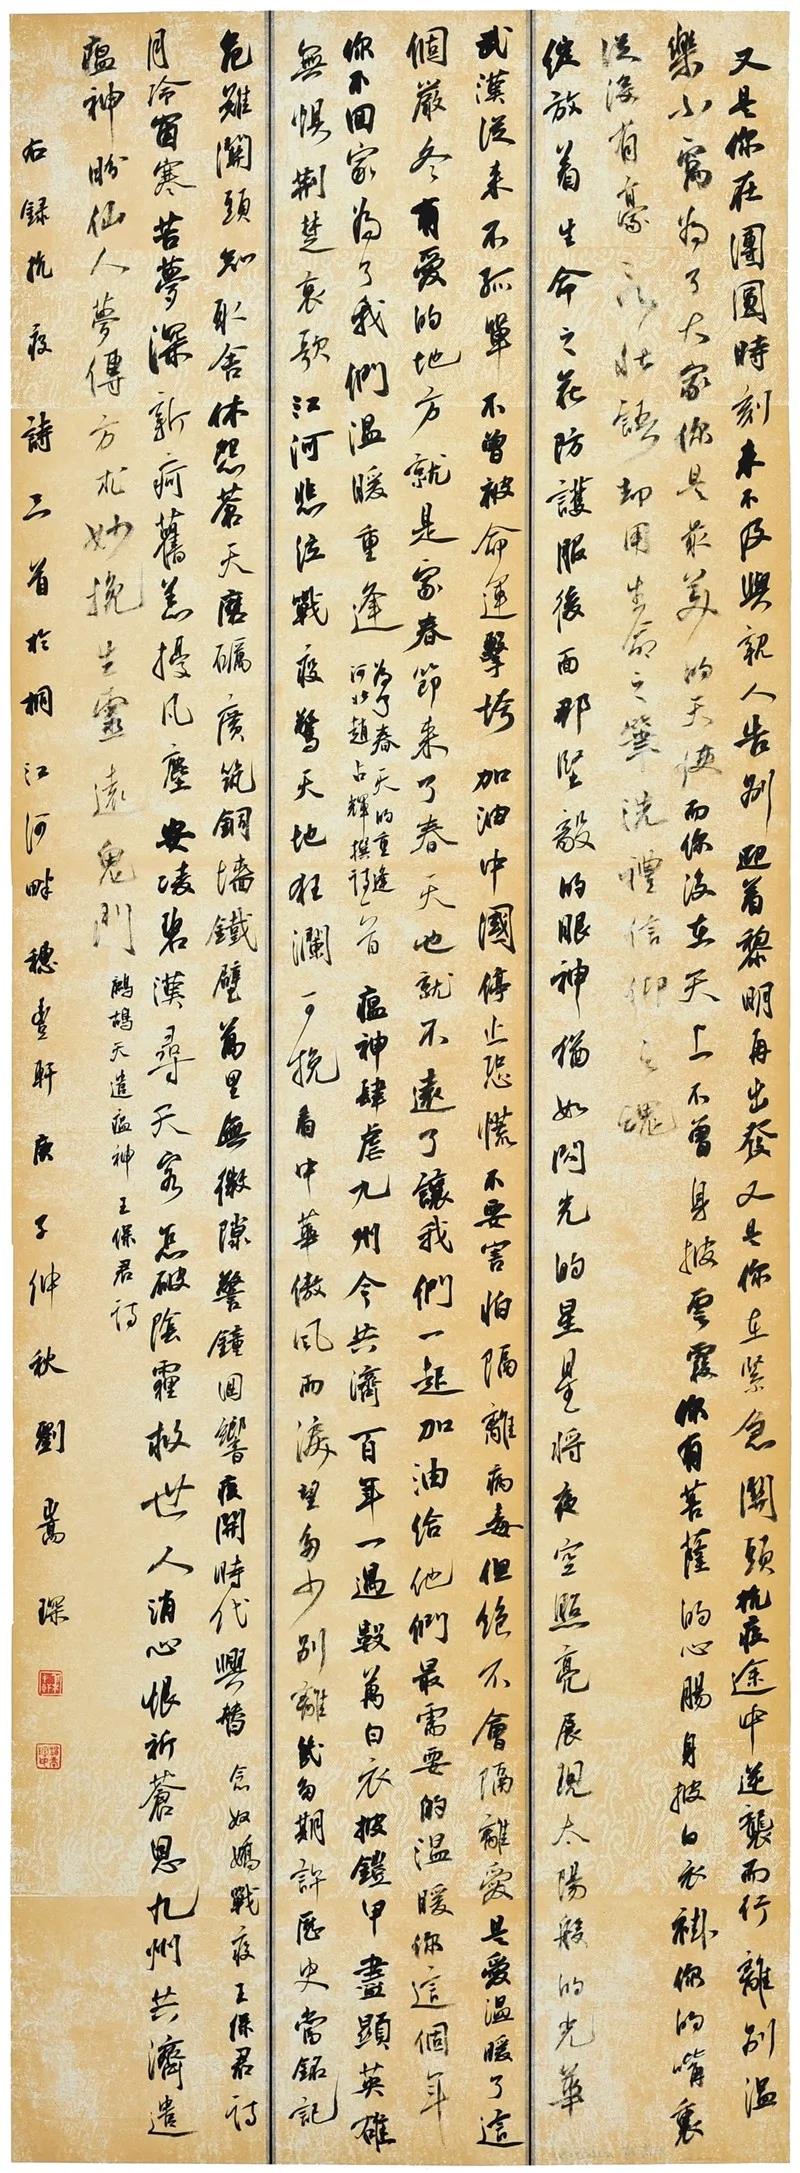 又是你在團圓時刻来不及與親人告别迎着黎明再出發又是你在緊急關頭抗疫途中逆襲而行離别温
樂小窩為了大家你是最美的天使而你没在天上不曾身披雲霞你有菩薩的心腸身披白衣褂你的嘴裏
從没有豪言壮語却用生命之筆洗禮信仰之魂
綻放着生命之花防護服後面那堅毅的眼神猶如閃光的星星將夜空照亮展現太陽般的光華
武漢從来不孤單不曾被命運擊垮加油中國停止恐慌不要害怕隔離病毒但絶不會隔離愛是愛温暖了這
個嚴冬有愛的地方就是家春節来了春天也就不遠了讓我們一起加油给他們最需要的温暖你這個年
你不回家為了我們温暖重逢 為了春天的重逢 河北趙占輝撰詩一首 瘟神肆虐九州今共濟百年一遇數萬白衣披鎧甲盡顯英雄
無懼荆楚哀歌江河悲泣戰疫驚天地狂瀾可挽看中華傲風雨 淚望多少别離幾多期許歷史當銘記
危難關頭知取舍休怨蒼天磨礪廣筑銅墻鐵壁萬里無微隙警鐘迴響疫開時代興替 念奴嬌戰疫王保君詩
月冷窗寒苦夢深新疴舊恙擾凡塵安凌碧漢尋天客怎破陰霾救世人消心恨祈蒼恩九州共濟遣
瘟神盼仙人夢傳方术妙挽生靈遠鬼門 鷓鴣天遣瘟神 王保君詩
右録抗疫詩三首於桐江河畔穗壹軒庚子仲秋劉嵩琛